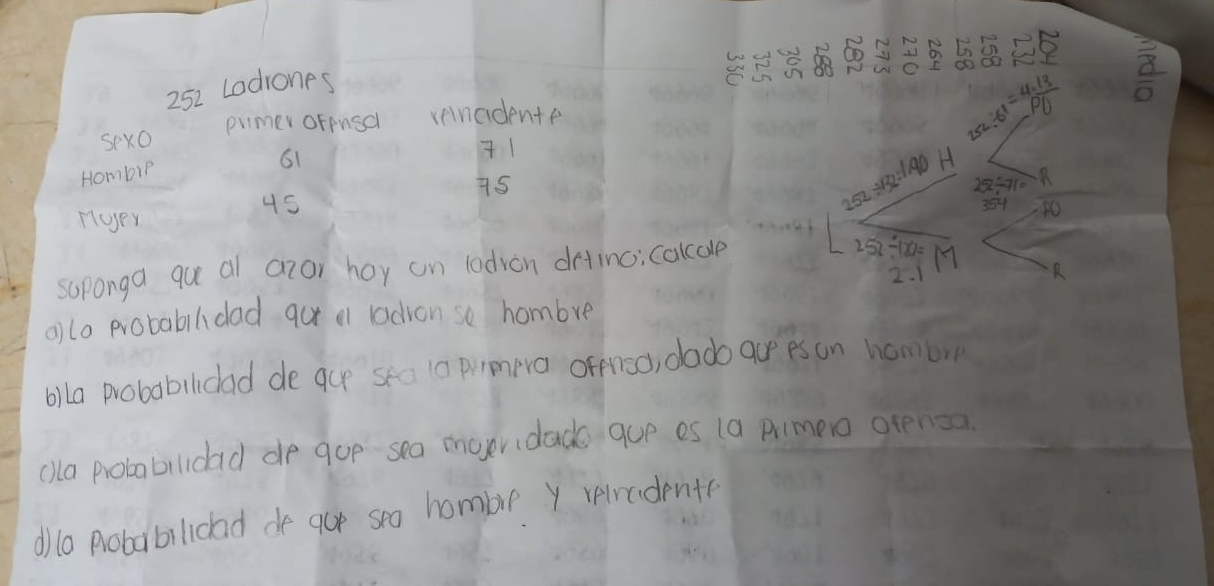 252 Ladrones
sexo primer ofensa reincidente
Hombre 61 71
Mujer 45 75
suponga que al azar hay un ladron detino; calcule
a) La probabilidad que el ladron se hombre
b) La probabilidad de que sea la primera ofensa, dado que es un hombre
c) La probabilidad de que sea mujer, dado que es la primera ofensa.
d) La probabilidad de que sea hombre y reincidente
L
252÷132=1.90 H
252÷120=
2.1 M
252÷61=4.13
PO
252÷71=
354
R
PO
R
media
204
232
258
258
264
270
273
282
288
305
325
330